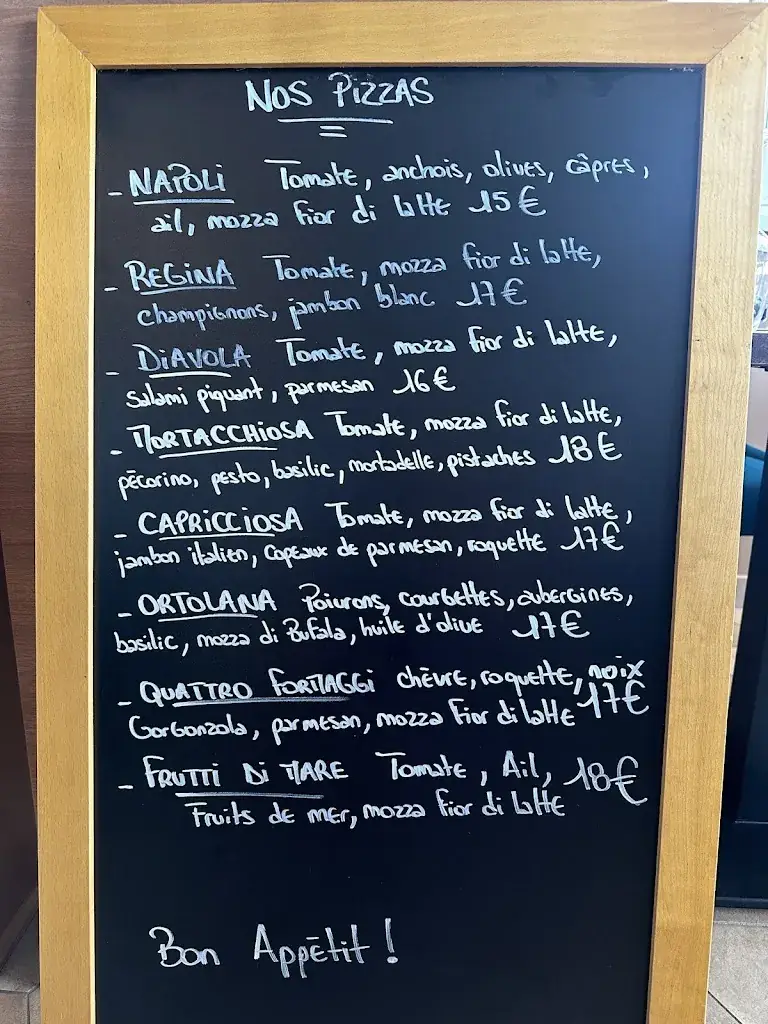 NOS PIZZAS
- NAPOLI Tomate, anchois, olives, câpres,
ail, mozza fior di latte 15€
- REGINA Tomate, mozza fior di latte,
champignons, jambon blanc 17€
- DIAVOLA Tomate, mozza fior di latte,
Salami piquant, parmesan 16€
- MORTACCHIOSA Tomate, mozza fior di latte,
pécorino, pesto, basilic, mortadelle, pistaches 18€
- CAPRICCIOSA Tomate, mozza fior di latte,
jambon italien, copeaux de parmesan, roquette 17€
- ORTOLANA Poivrons, courgettes, aubergines,
basilic, mozza di Bufala, huile d'olive 17€
- QUATTRO FORMAGGI chèvre, roquette, noix
Gorgonzola, parmesan, mozza fior di latte 17€
- FRUTTI DI MARE Tomate, Ail, 18€
Fruits de mer, mozza fior di latte
Bon Appétit !